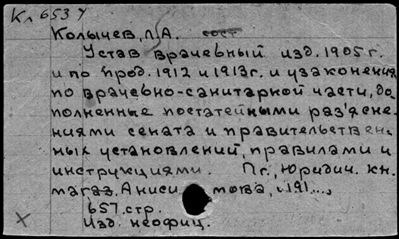 Кл 6534
Колычев, Л.А. сост
Устав врачебный изд. 1905 г.
и по прод. 1912 и 1913 г. и узаконения
по врачебно-санитарной части, до
полненные постатейными раз'ясне-
ниями сената и правительствен
ных установлений, правилами и
инструкциями. Пг., Юридич. кн.
магаз. Аниси мова, 191...,
657. стр.
Изд. неофиц.